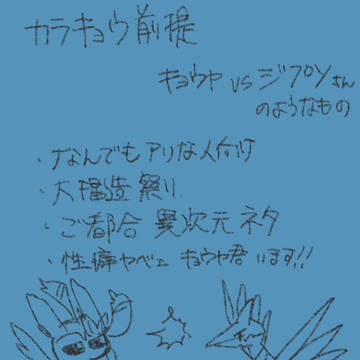 カラキョウ前提
キョウヤ vs ジフロYさん
のようなもの
・なんでもアリな人向け
・大捏造祭り
・ご都合 異次元ネタ
・性癖ヤベェ キョウヤ君 います!!